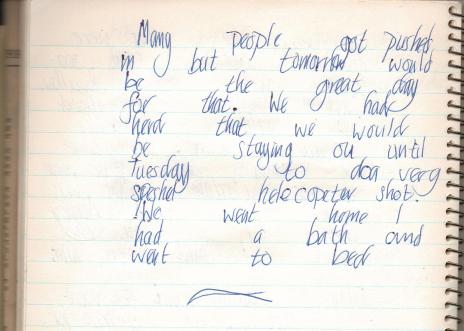 Many people got pushed
in but tomorrow would
be the great day
for that. We had
herd that we would
be staying on until
Tuesday to do a very
speshel helecopeter shot.
We went home I
had a bath and
went to bed